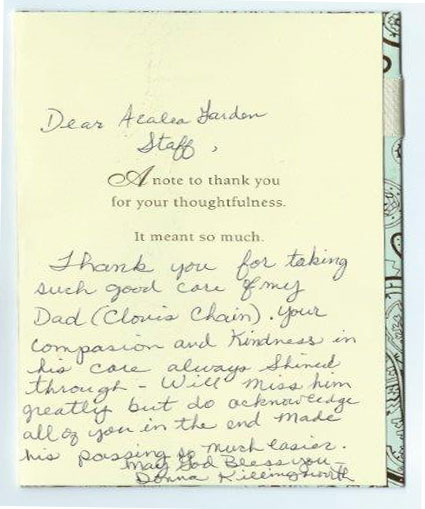 Dear Acalea Garden
Staff,
A note to thank you
for your thoughtfulness.
It meant so much.
Thank you for taking
such good care of my
Dad (Clovis Chain). Your
compasion and Kindness in
his care always Shined
through - Will miss him
greatly but do acknowledge
all of you in the end made
his passing so much easier.
May God Bless you -
Donna Killingsworth